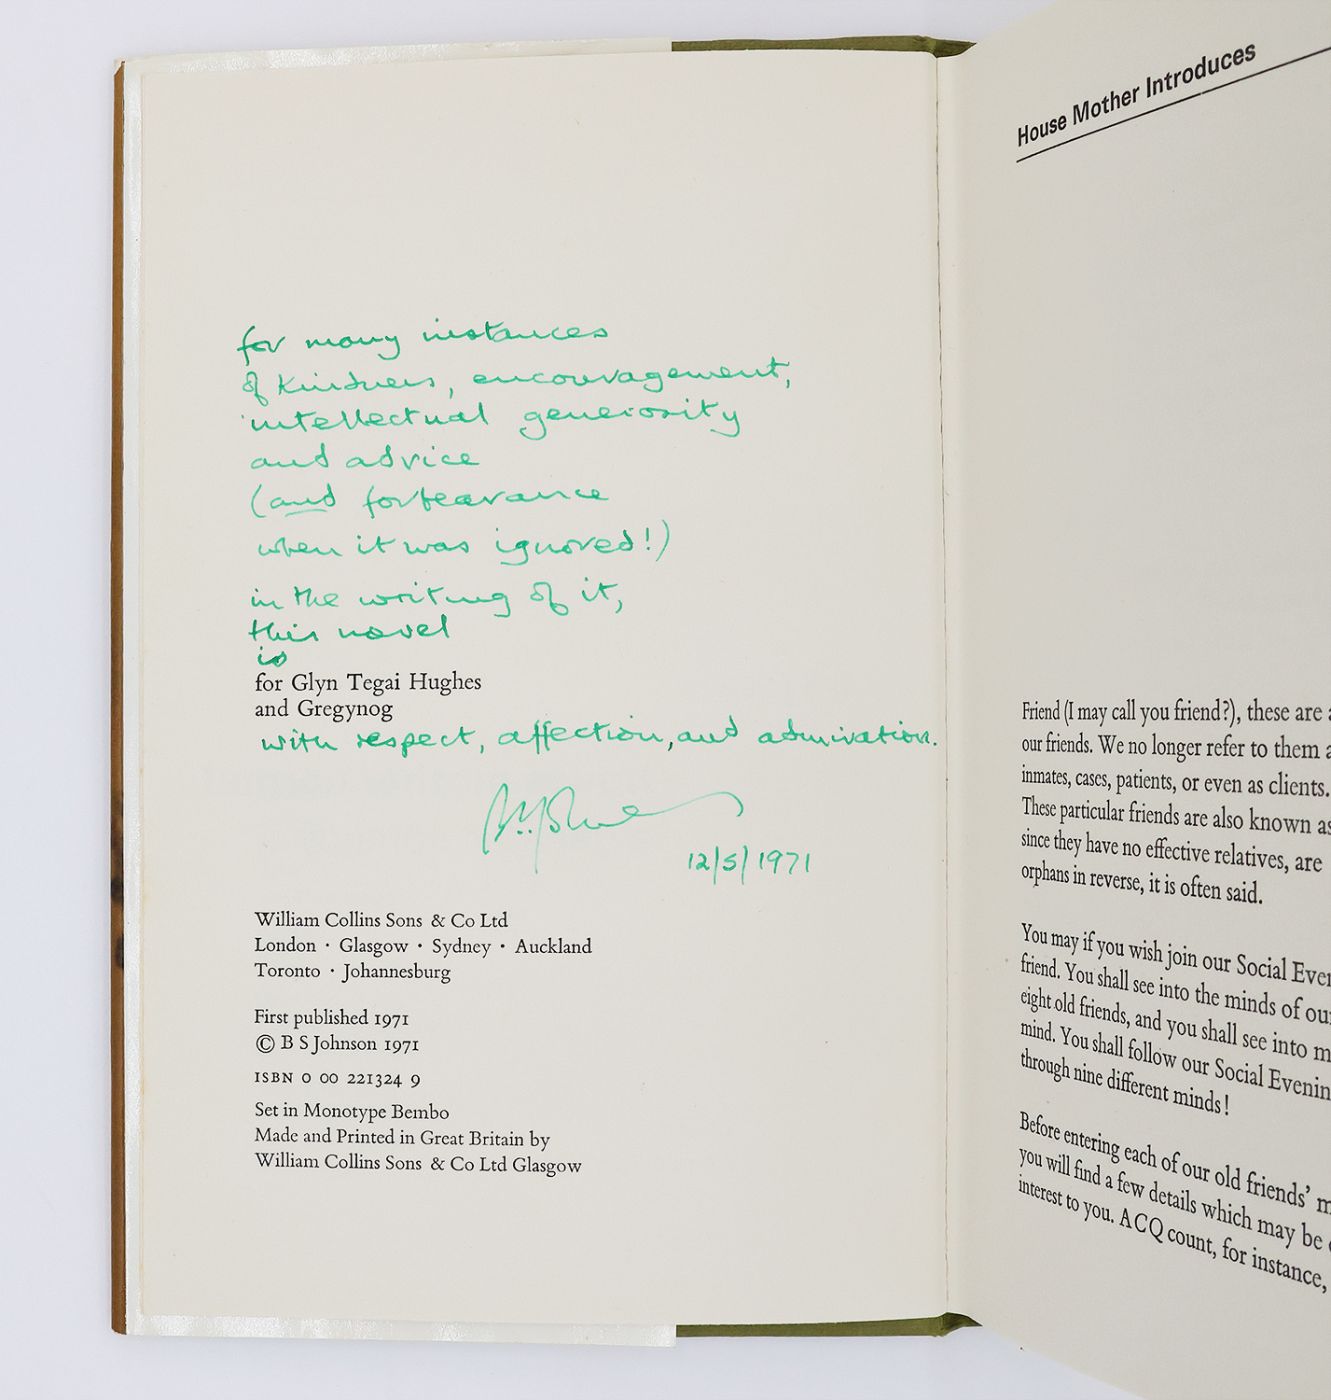 for many instances
of kindness, encouragement,
intellectual generosity
and advice
(and forbearance
when it was ignored!)
in the writing of it,
this novel
is
for Glyn Tegai Hughes
and Gregynog
with respect, affection, and admiration.
12/5/1971
William Collins Sons & Co Ltd
London · Glasgow · Sydney · Auckland
Toronto · Johannesburg
First published 1971
© B S Johnson 1971
ISBN 0 00 221324 9
Set in Monotype Bembo
Made and Printed in Great Britain by
William Collins Sons & Co Ltd Glasgow
House Mother Introduces
Friend (I may call you friend?), these are
our friends. We no longer refer to them
inmates, cases, patients, or even as clients.
These particular friends are also known as
since they have no effective relatives, are
orphans in reverse, it is often said.
You may if you wish join our Social
friend. You shall see into the minds of
eight old friends, and you shall see into
mind. You shall follow our Social
through nine different minds!
Before entering each of our old friends'
you will find a few details which may be
interest to you. ACQ count, for instance,